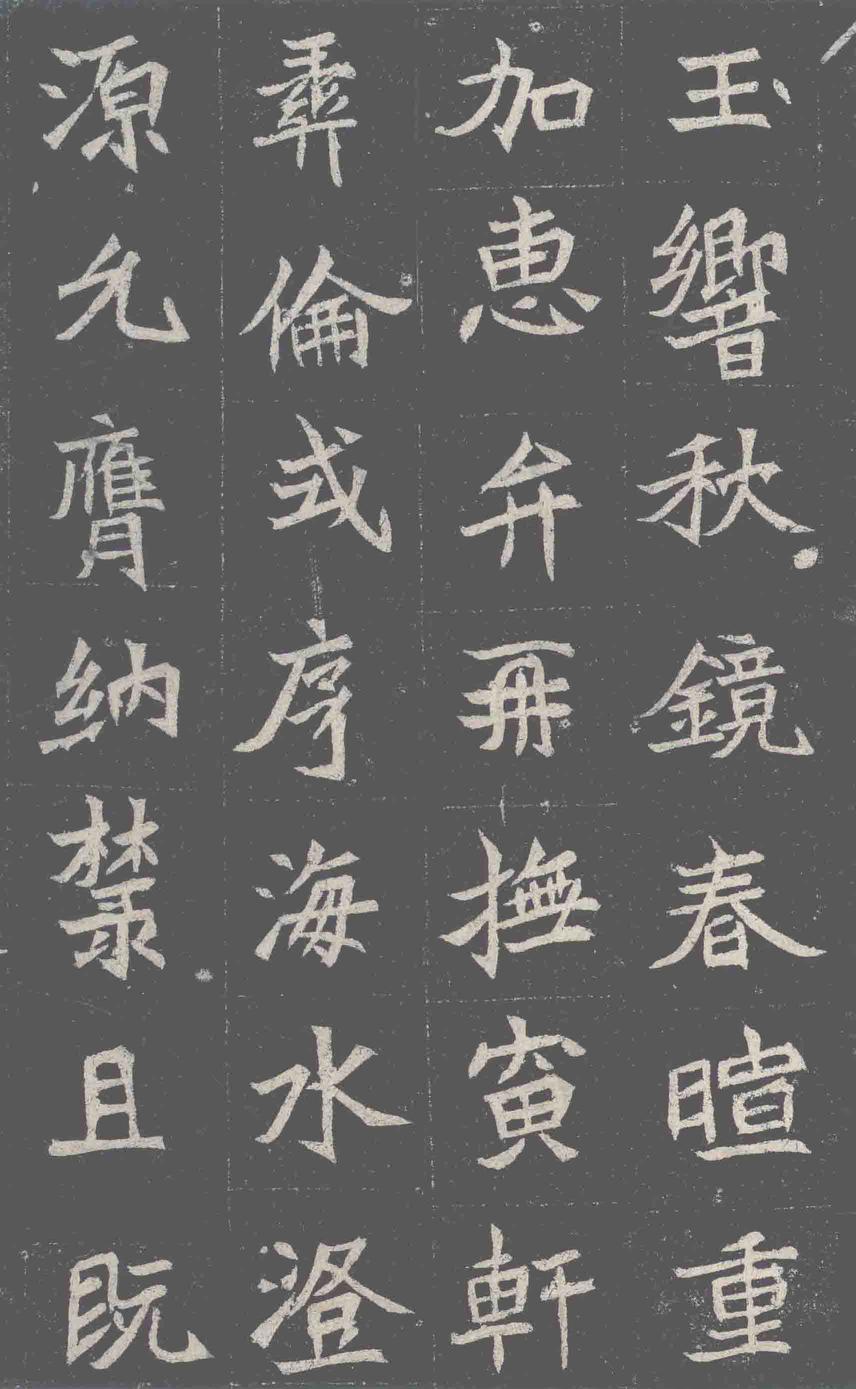 玉響秋鏡春暄重
加惠弁再撫寅軒
彝倫式序海水澄
源允膺納麓且既